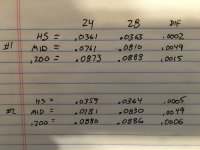 24 28 DIF
#1 HS = .0361 .0363 .0002
MID = .0761 .0810 .0049
.200 = .0873 .0888 .0015
#2 HS = .0359 .0364 .0005
MID = .0781 .0830 .0049
.200 = .0880 .0886 .0006